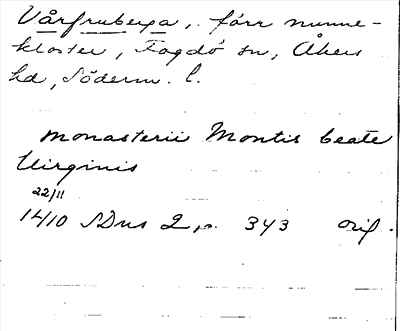 Vårfruberga, förr nunne-
kloster, Fogdö sn, Åkers
hd, Söderm. l.
monasterii Montis beate
Virginis
22/11
1410 SDns 2, s. 343 orig.